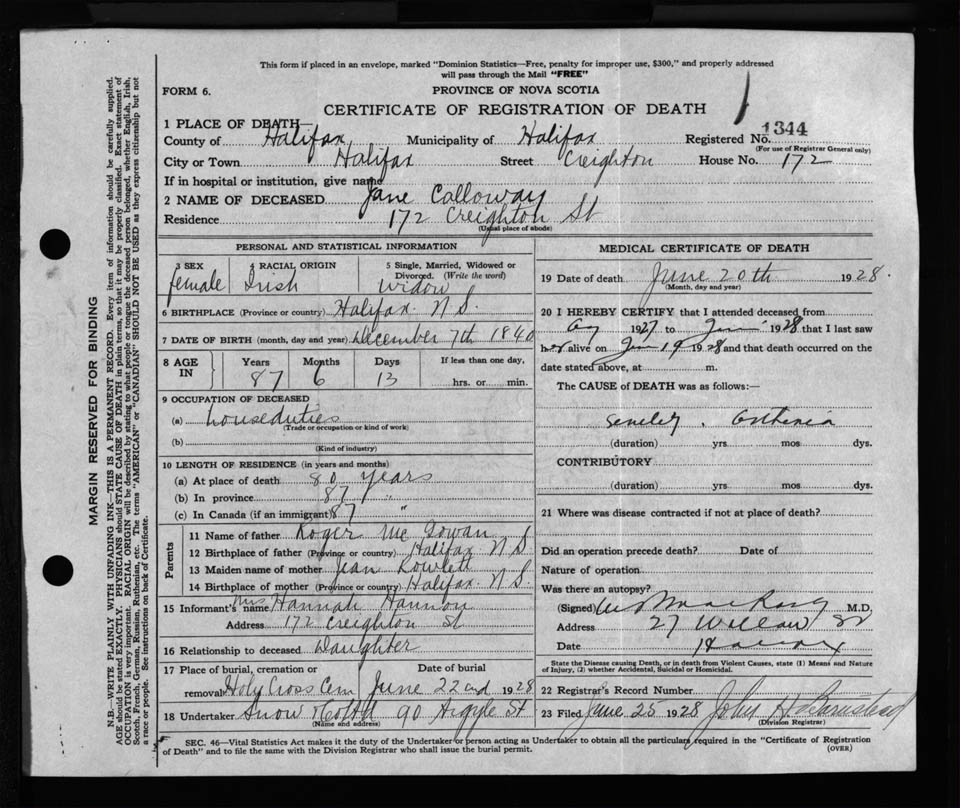 This form if placed in an envelope, marked "Dominion Statistics—Free, penalty for improper use, $300," and properly addressed
will pass through the Mail "FREE"
FORM 6.
PROVINCE OF NOVA SCOTIA
CERTIFICATE OF REGISTRATION OF DEATH
1 PLACE OF DEATH—
County of Halifax Municipality of Halifax Registered No. 1344
(For use of Registrar General only)
City or Town Halifax Street Creighton House No. 172
If in hospital or institution, give name
2 NAME OF DECEASED Jane Calloway
Residence 172 Creighton St
(Usual place of abode)
PERSONAL AND STATISTICAL INFORMATION
3 SEX 4 RACIAL ORIGIN 5 Single, Married, Widowed or
Divorced. (Write the word)
female Irish Widow
6 BIRTHPLACE (Province or country) Halifax. N S.
7 DATE OF BIRTH (month, day and year) December 7th 1840
8 AGE IN Years Months Days If less than one day,
87 6 13 hrs. or min.
9 OCCUPATION OF DECEASED
(a) house duties
(Trade or occupation or kind of work)
(b)
(Kind of industry)
10 LENGTH OF RESIDENCE (in years and months)
(a) At place of death 80 years
(b) In province 87 "
(c) In Canada (if an immigrant) 87 "
Parents
11 Name of father Roger Mc Gowan
12 Birthplace of father (Province or country) Halifax N S
13 Maiden name of mother Jean Rowlett
14 Birthplace of mother (Province or country) Halifax. N S.
15 Informant's name Mrs Hannah Hannon
Address 172 Creighton St
16 Relationship to deceased Daughter
17 Place of burial, cremation or Date of burial
removal Holy Cross Cem June 22nd 1928
18 Undertaker Snow 90 Argyle St
(Name and address)
MEDICAL CERTIFICATE OF DEATH
19 Date of death June 20th 1928.
(Month, day and year)
20 I HEREBY CERTIFY that I attended deceased from
1927 to 1928 that I last saw
her alive on Jun 19 1928 and that death occurred on the
date stated above, at m.
The CAUSE of DEATH was as follows:—
(duration) yrs mos dys.
CONTRIBUTORY
(duration) yrs mos dys.
21 Where was disease contracted if not at place of death?
Did an operation precede death? Date of
Nature of operation
Was there an autopsy?
(Signed) M.D.
Address 27 Willow St
Date
State the Disease causing Death, or in death from Violent Causes, state (1) Means and Nature
of Injury, (2) whether Accidental, Suicidal or Homicidal.
22 Registrar's Record Number
23 Filed June 25 1928 John H.
(Division Registrar)
SEC. 46—Vital Statistics Act makes it the duty of the Undertaker or person acting as Undertaker to obtain all the particulars required in the "Certificate of Registration
of Death" and to file the same with the Division Registrar who shall issue the burial permit.
(OVER)
MARGIN RESERVED FOR BINDING
N.B.—WRITE PLAINLY WITH UNFADING INK—THIS IS A PERMANENT RECORD. Every item of information should be carefully supplied.
AGE should be stated EXACTLY. PHYSICIANS should STATE CAUSE OF DEATH in plain terms, so that it may be properly classified. Exact statement of
OCCUPATION is very important. RACIAL ORIGIN will be described by stating to what people or tongue the deceased person belonged, whether English, Irish,
Scotch, French, German, Russian, Ruthenian, etc. The terms "AMERICAN" or "CANADIAN" SHOULD NOT BE USED as they express citizenship but not
a race or people. See instructions on back of Certificate.